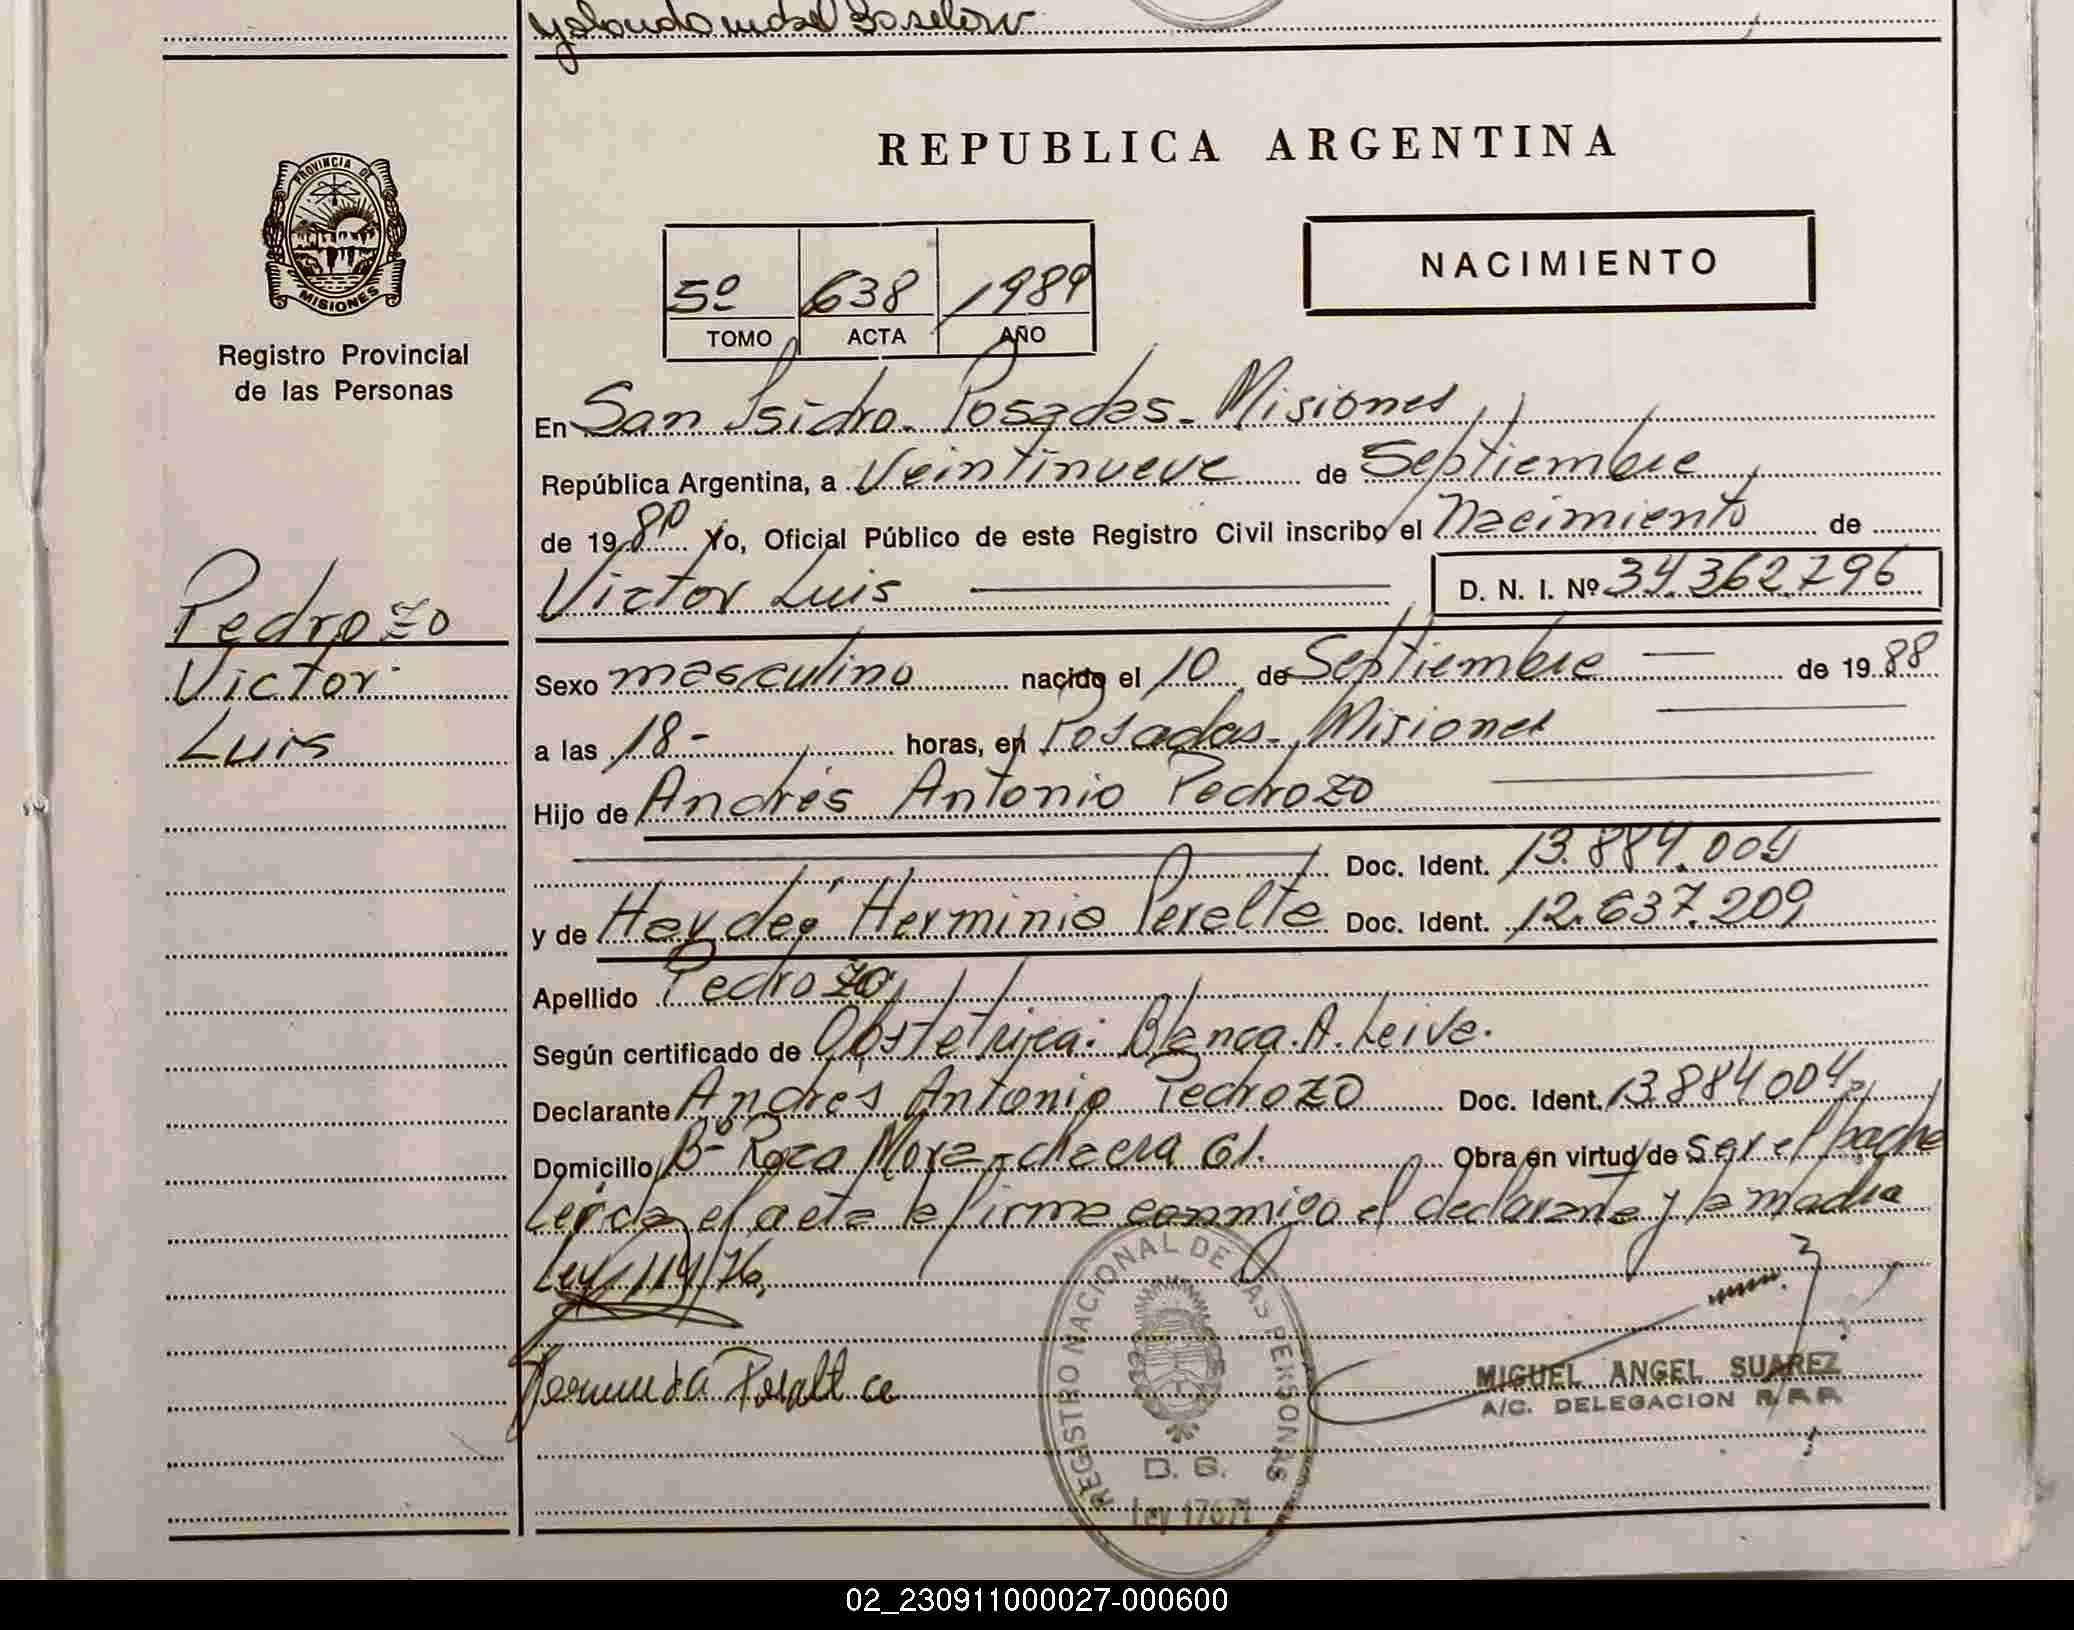 REPUBLICA ARGENTINA
PROVINCIA DE
MISIONES
Registro Provincial
de las Personas
5º 638 1989
TOMO ACTA AÑO
NACIMIENTO
En San Isidro - Posadas - Misiones
República Argentina, a Veintinueve de Septiembre
de 19 89 Yo, Oficial Público de este Registro Civil inscribo el Nacimiento de
Victor Luis D. N. I. Nº 34.362.796
Pedrozo
Victor
Luis
Sexo masculino nacido el 10 de Septiembre de 19 88
a las 18- horas, en Posadas - Misiones
Hijo de Andrés Antonio Pedrozo
Doc. Ident. 13.884.004
y de Haydeé Herminia Peralta Doc. Ident. 12.637.209
Apellido Pedrozo
Según certificado de Obstetrica: Blanca. A. Leiva.
Declarante Andres Antonio Pedrozo Doc. Ident. 13.884.004
Domicilio Bº Roca Mora - chacra 61. Obra en virtud de ser el padre
Leída el acta la firma conmigo el declarante y la madre
Ley 114/76,
REGISTRO NACIONAL DE LAS PERSONAS
D. G.
Ley 17671
MIGUEL ANGEL SUAREZ
A/C. DELEGACION R.P.P.
02_230911000027-000600